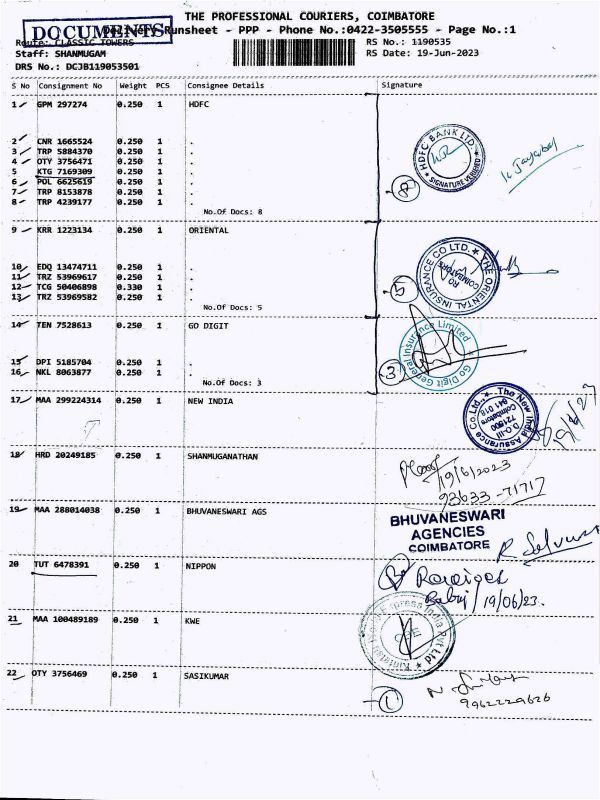 THE PROFESSIONAL COURIERS, COIMBATORE
DOCUMENTS Delivery Runsheet - PPP - Phone No.:0422-3505555 - Page No.:1
Route: CLASSIC TOWERS RS No.: 1190535
Staff: SHANMUGAM RS Date: 19-Jun-2023
DRS No.: DCJB119053501
S No Consignment No Weight PCS Consignee Details Signature
1 GPM 297274 0.250 1 HDFC
2 CNR 1665524 0.250 1 .
3 TRP 5884370 0.250 1 .
4 OTY 3756471 0.250 1 .
5 KTG 7169309 0.250 1 .
6 POL 6625619 0.250 1 .
7 TRP 8153878 0.250 1 .
8 TRP 4239177 0.250 1 .
No.Of Docs: 8
HDFC BANK LTD. SIGNATURE VERIFIED
8
9 KRR 1223134 0.250 1 ORIENTAL
10 EDQ 13474711 0.250 1 .
11 TRZ 53969617 0.250 1 .
12 TCG 50406898 0.330 1 .
13 TRZ 53969582 0.250 1 .
No.Of Docs: 5
THE ORIENTAL INSURANCE CO LTD. RO COIMBATORE
5
14 TEN 7528613 0.250 1 GO DIGIT
15 DPI 5185704 0.250 1 .
16 NKL 8063877 0.250 1 .
No.Of Docs: 3
Go Digit General Insurance Limited
3
17 MAA 299224314 0.250 1 NEW INDIA
The New India Assurance Co.Ltd. D.O.III 721600 Coimbatore 641 018
18 HRD 20249185 0.250 1 SHANMUGANATHAN
19/6/2023
93633-71717
19 MAA 288014038 0.250 1 BHUVANESWARI AGS
BHUVANESWARI
AGENCIES
COIMBATORE
20 TUT 6478391 0.250 1 NIPPON
19/06/23.
21 MAA 100489189 0.250 1 KWE
Kintetsu World Express India Pvt Ltd
22 OTY 3756469 0.250 1 SASIKUMAR
1
9962229626